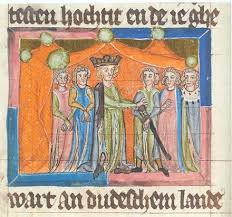 teten hochtit en de ieghe
wart an dudeschem lande